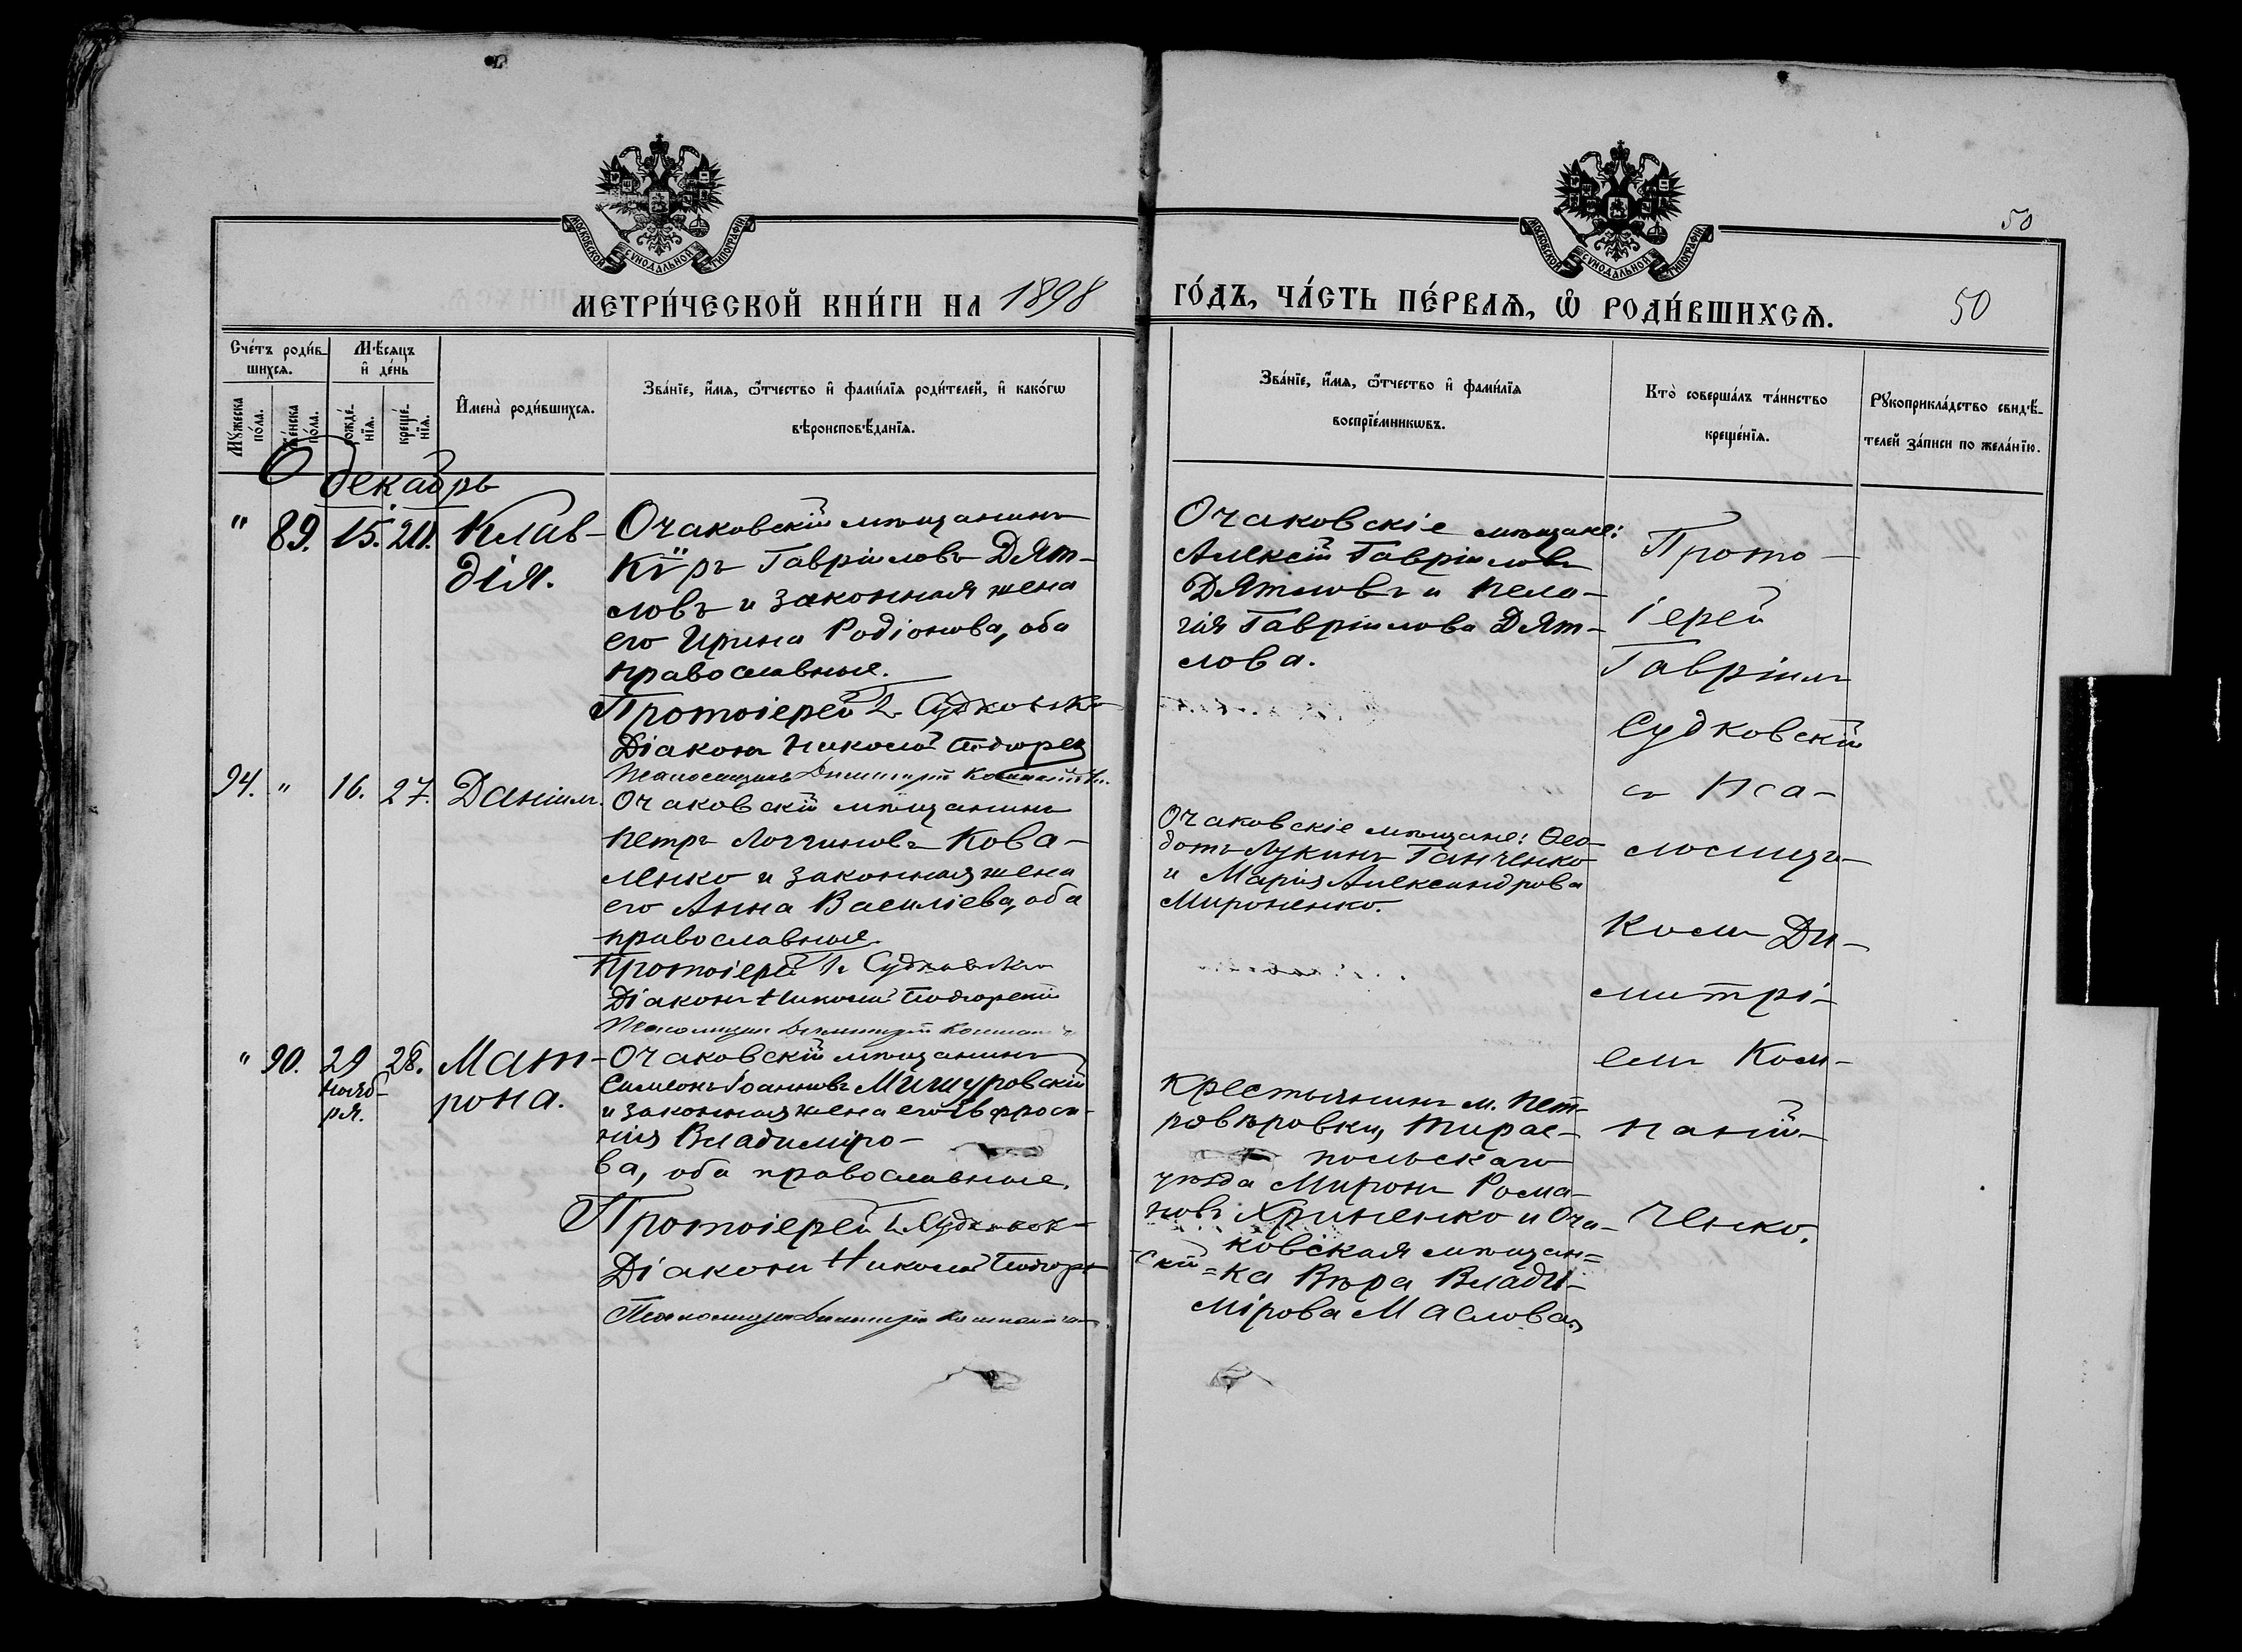 50
МОСКОВСКОЙ СѴНОДАЛЬНОЙ ТИПОГРАФІИ.
МОСКОВСКОЙ СѴНОДАЛЬНОЙ ТИПОГРАФІИ.
МЕТРИ́ЧЕСКОЙ КНИ́ГИ НА 1898
ГО́ДЪ, ЧА́СТЬ ПЕ́РВАѦ, Ѡ҆ РОДИ́ВШИХСѦ.
50
Сче́тъ роди́в-
шихсѧ.
Мѣ́сѧцъ
и҆ де́нь
Мꙋ́жеска
по́ла.
Же́нска
по́ла.
рожде́-
нїѧ.
креще́-
нїѧ.
И҆мена̀ роди́вшихсѧ.
Зва́нїе, и҆́мѧ, ѻ҆́тчество и҆ фами́лїѧ роди́телей, и҆ како́гѡ
вѣроисповѣ́данїѧ.
Зва́нїе, и҆́мѧ, ѻ҆́тчество и҆ фами́лїѧ
воспрїе́мникѡвъ.
Кто̀ соверша́лъ та́инство
креще́нїѧ.
Рꙋкоприкла́дство свидѣ́-
телей за́писи по жела́нїю.
декабрь
" 89. 15. 20. Клав-
дія.
Очаковскій мѣщанинъ
Кѵръ Гавріиловъ Дят-
ловъ и законная жена
его Ирина Родіонова, оба
православные.
Протоіерей Г. Судковскі
Діаконъ Николай Подгорец
Псаломщикъ Димитрій
Очаковскіе мѣщане:
Алексій Гавріиловъ
Дятловъ и Пела-
гія Гавріилова Дят-
лова.
Прото-
іерей
Гавріилъ
Судковскій
съ Пса-
ломщи-
комъ Ди-
митрі-
емъ Ком-
паній-
ченко.
94. " 16. 27. Даніилъ.
Очаковскій мѣщанинъ
Петръ Логгиновъ Кова-
ленко и законная жена
его Анна Василіева, оба
православные.
Протоіерей Г. Судковскі
Діаконъ Николай Подгорскій
Псаломщикъ Димитрій
Очаковскіе мѣщане: Ѳео-
дотъ Лукинъ Ганченко
и Марія Александрова
Мироненко.
" 90. 29 28. Мат-
нояб-
ря.
рона.
Очаковскій мѣщанинъ
Симеонъ Іоанновъ Мишуровскій
и законная жена его Евфроси-
нія Владиміро-
ва, оба православные.
Протоіерей Г. Судковск
Діаконъ Николай Подгор
скій
Псаломщикъ Димитрій
Крестьянинъ м. Пет-
ровѣровки, Тирас-
польскаго
уѣзда Миронъ Рома-
новъ Хриненко и Оча-
ковская мѣщан=
=ка Вѣра Влади-
мірова Маслова.